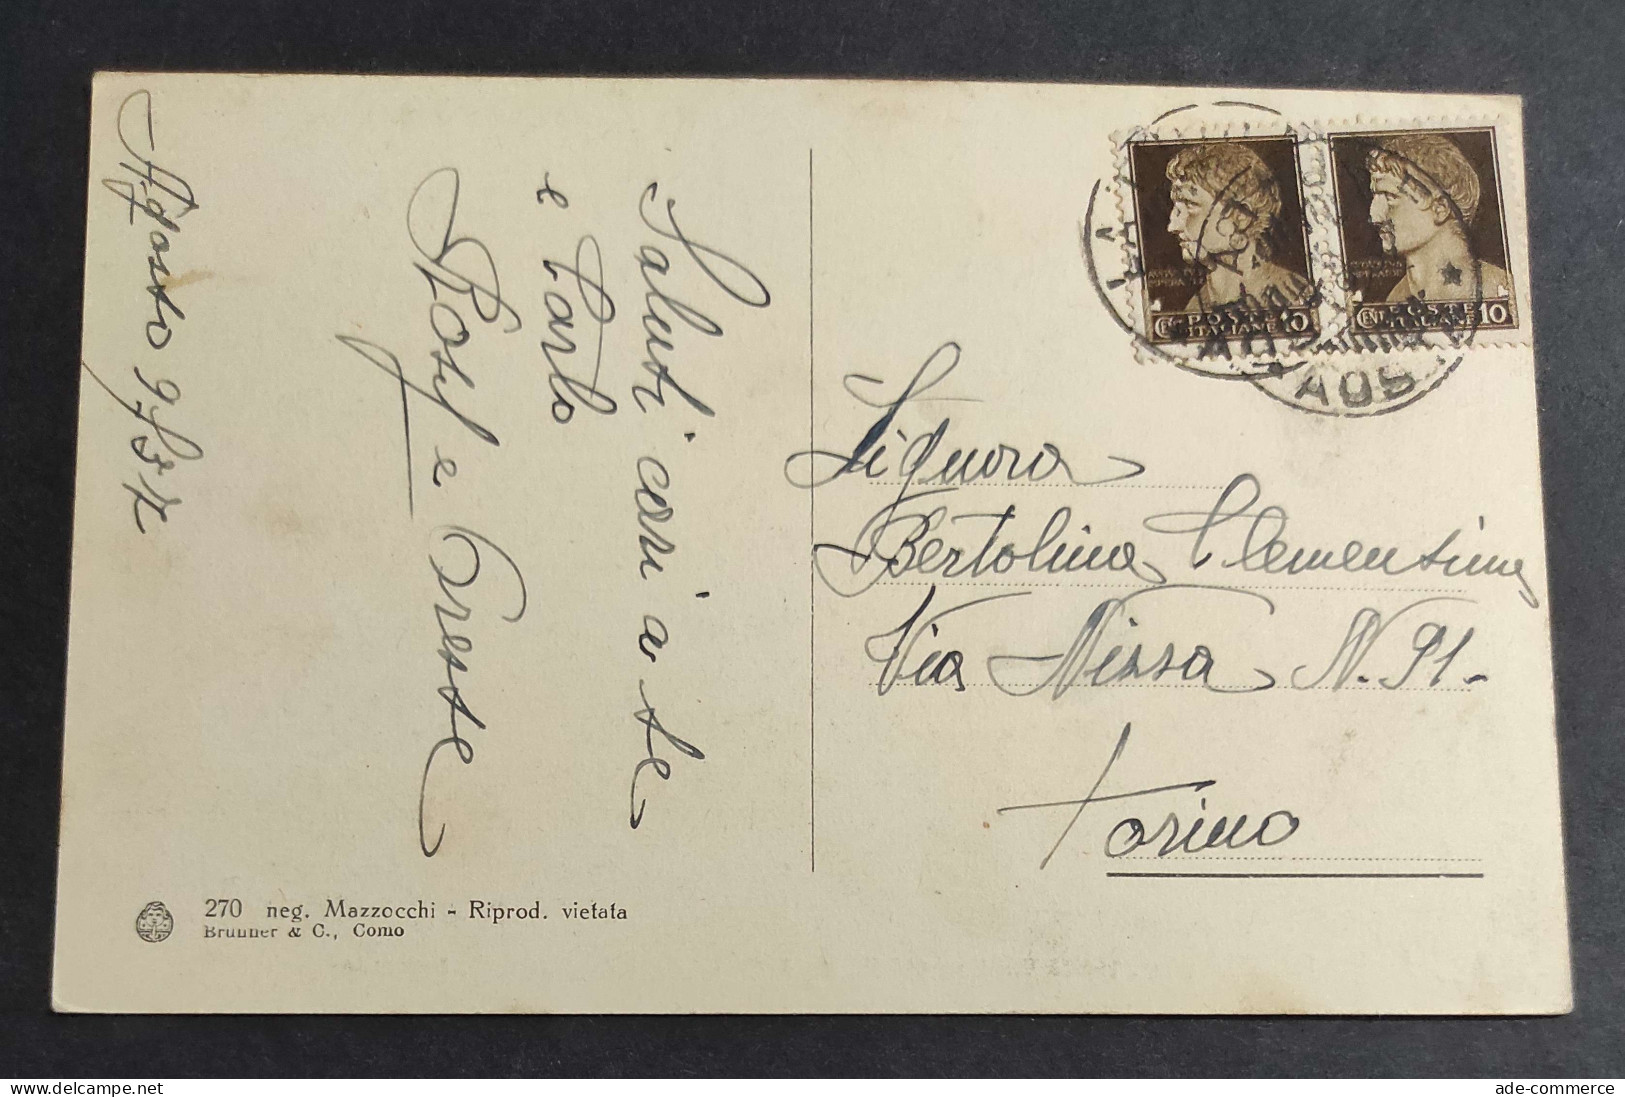 Agosto 9/37
Saluti cari a te
e Carlo
Rosy e Oreste
Signora
Bertolina Clementina
Via Nizza N. 91-
Torino
CENT POSTE 10
ITALIANE
CENT POSTE 10
ITALIANE
AOS
270 neg. Mazzocchi - Riprod. vietata
Brunner & C., Como
ade-commerce